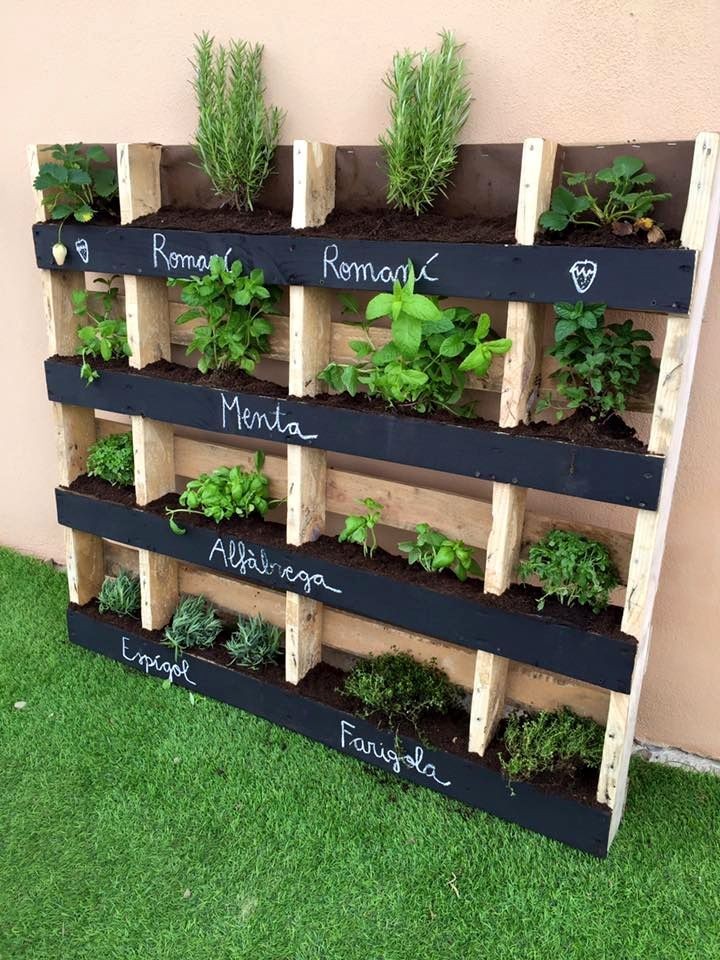 Romaní
Romaní
Menta
Alfàbrega
Espígol
Farigola